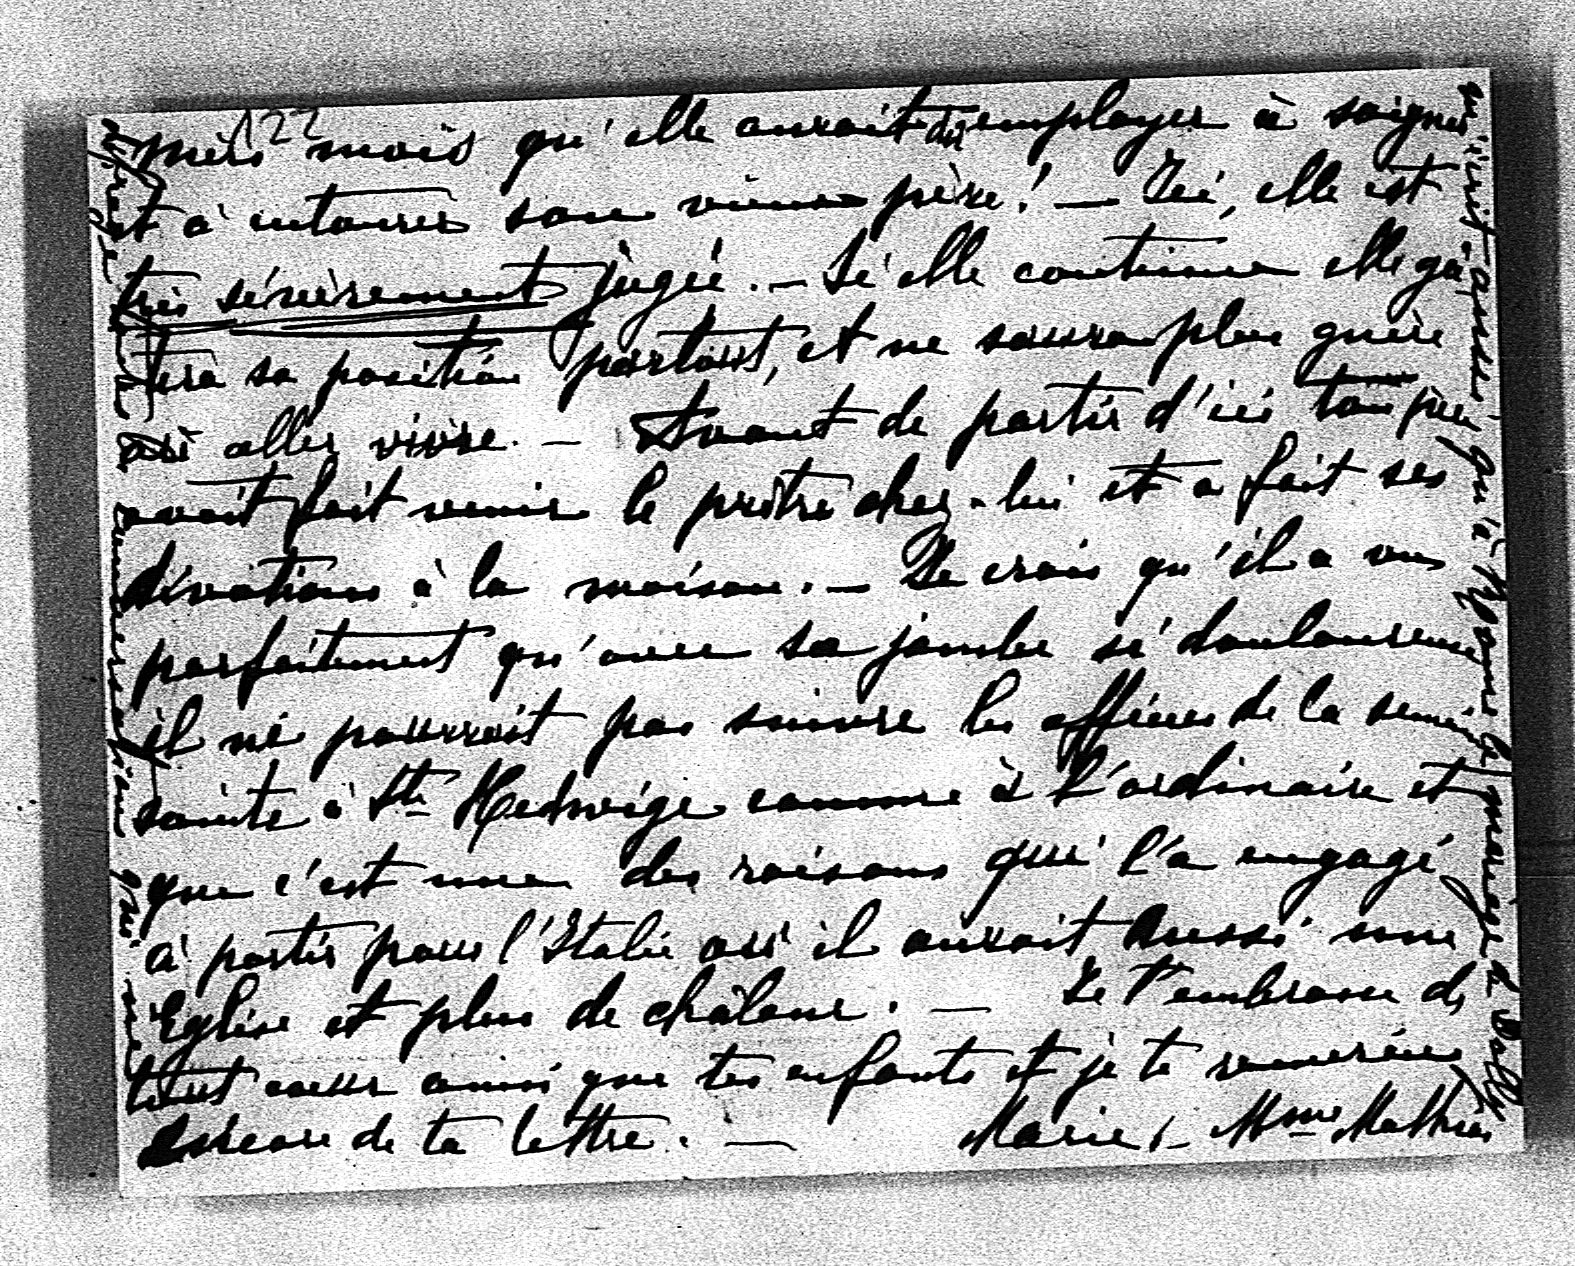 122
miers mois qu'elle aurait dû employer à soigner
et à entourer son vieux père! — Ici, elle est
très sévèrement jugée. — Si elle continue elle gâ-
tera sa position partout, et ne saura plus guère
où aller vivre. — Avant de partir d'ici ton père
avait fait venir le prêtre chez-lui et a fait ses
dévotions à la maison. — Je crois qu'il a vu
parfaitement qu'avec sa jambe si douloureuse
il ne pourrait pas suivre les offices de la semaine
sainte à Ste Hedwige comme à l'ordinaire et
que c'est une des raisons qui l'a engagé
à partir pour l'Italie où il aurait aussi une
Eglise et plus de chaleur. — Je t'embrasse de
tout cœur ainsi que tes enfants et je te remercie
encore de ta lettre. — Marie, — Mme Mathieu
m'écrit aussi qu'à Rome le mariage de Dolly
conversation qui